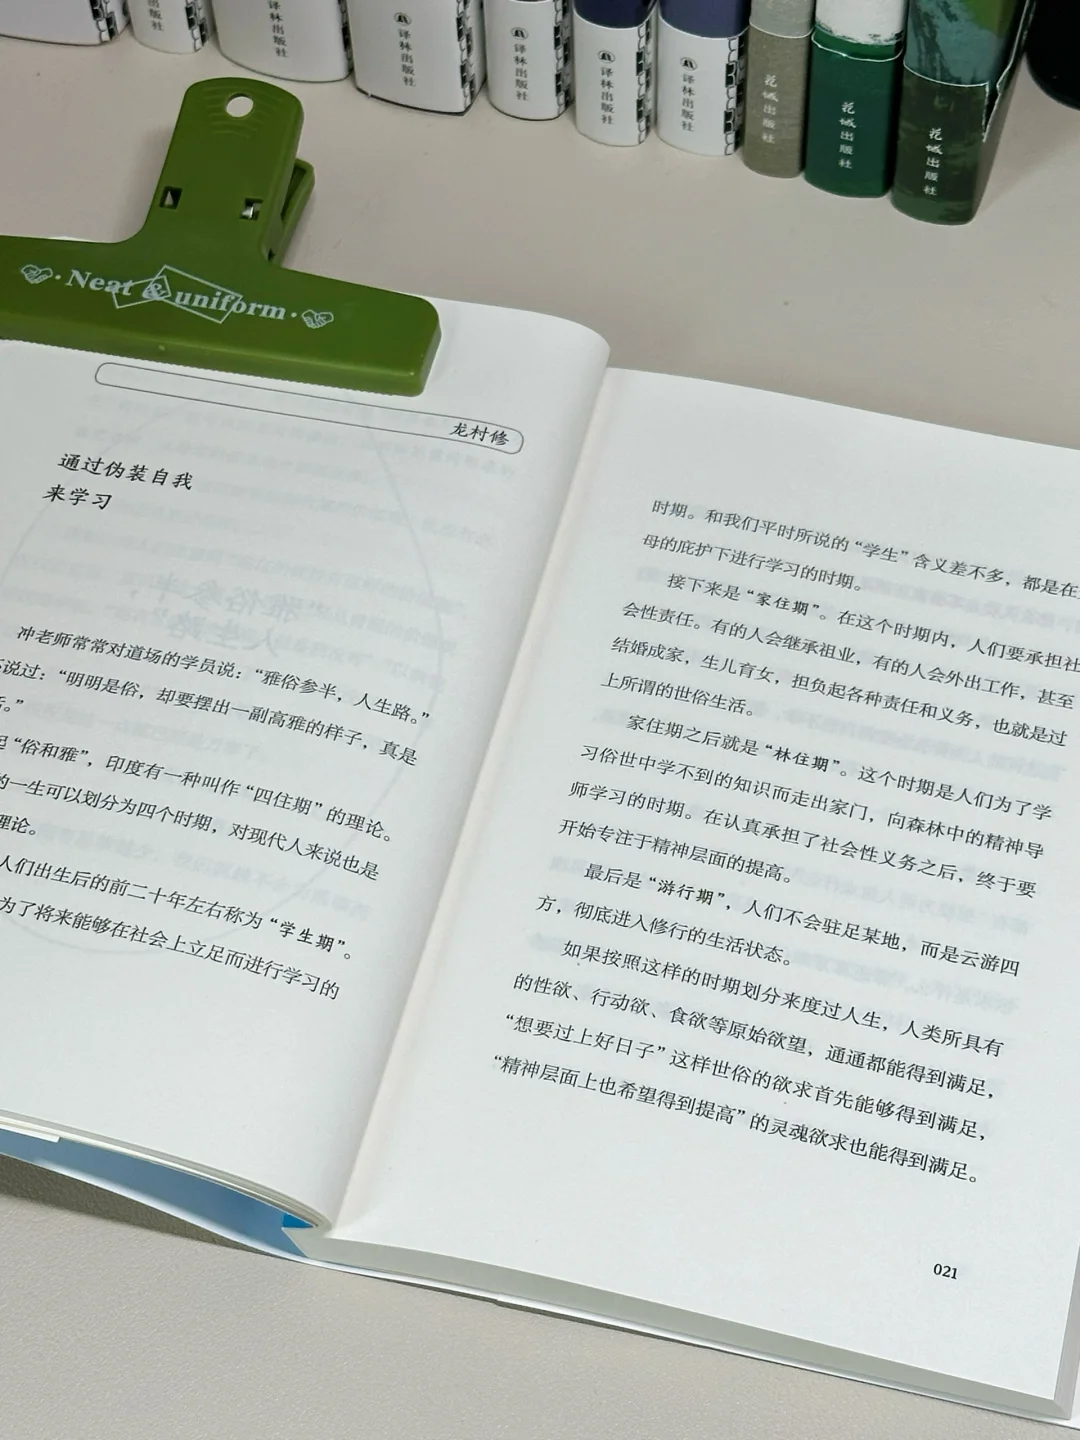 译林出版社
译林出版社
译林出版社
译林出版社
译林出版社
花城出版社
花城出版社
花城出版社
Neat & uniform
龙村修
通过伪装自我
来学习
冲老师常常对道场的学员说：“雅俗参半，人生路。”
说过：“明明是俗，却要摆出一副高雅的样子，真是
。”
“俗和雅”，印度有一种叫作“四住期”的理论。
的一生可以划分为四个时期，对现代人来说也是
理论。
人们出生后的前二十年左右称为“学生期”。
为了将来能够在社会上立足而进行学习的
时期。和我们平时所说的“学生”含义差不多，都是在
母的庇护下进行学习的时期。
接下来是“家住期”。在这个时期内，人们要承担社
会性责任。有的人会继承祖业，有的人会外出工作，甚至
结婚成家，生儿育女，担负起各种责任和义务，也就是过
上所谓的世俗生活。
家住期之后就是“林住期”。这个时期是人们为了学
习俗世中学不到的知识而走出家门，向森林中的精神导
师学习的时期。在认真承担了社会性义务之后，终于要
开始专注于精神层面的提高。
最后是“游行期”，人们不会驻足某地，而是云游四
方，彻底进入修行的生活状态。
如果按照这样的时期划分来度过人生，人类所具有
的性欲、行动欲、食欲等原始欲望，通通都能得到满足，
“想要过上好日子”这样世俗的欲求首先能够得到满足，
“精神层面上也希望得到提高”的灵魂欲求也能得到满足。
021